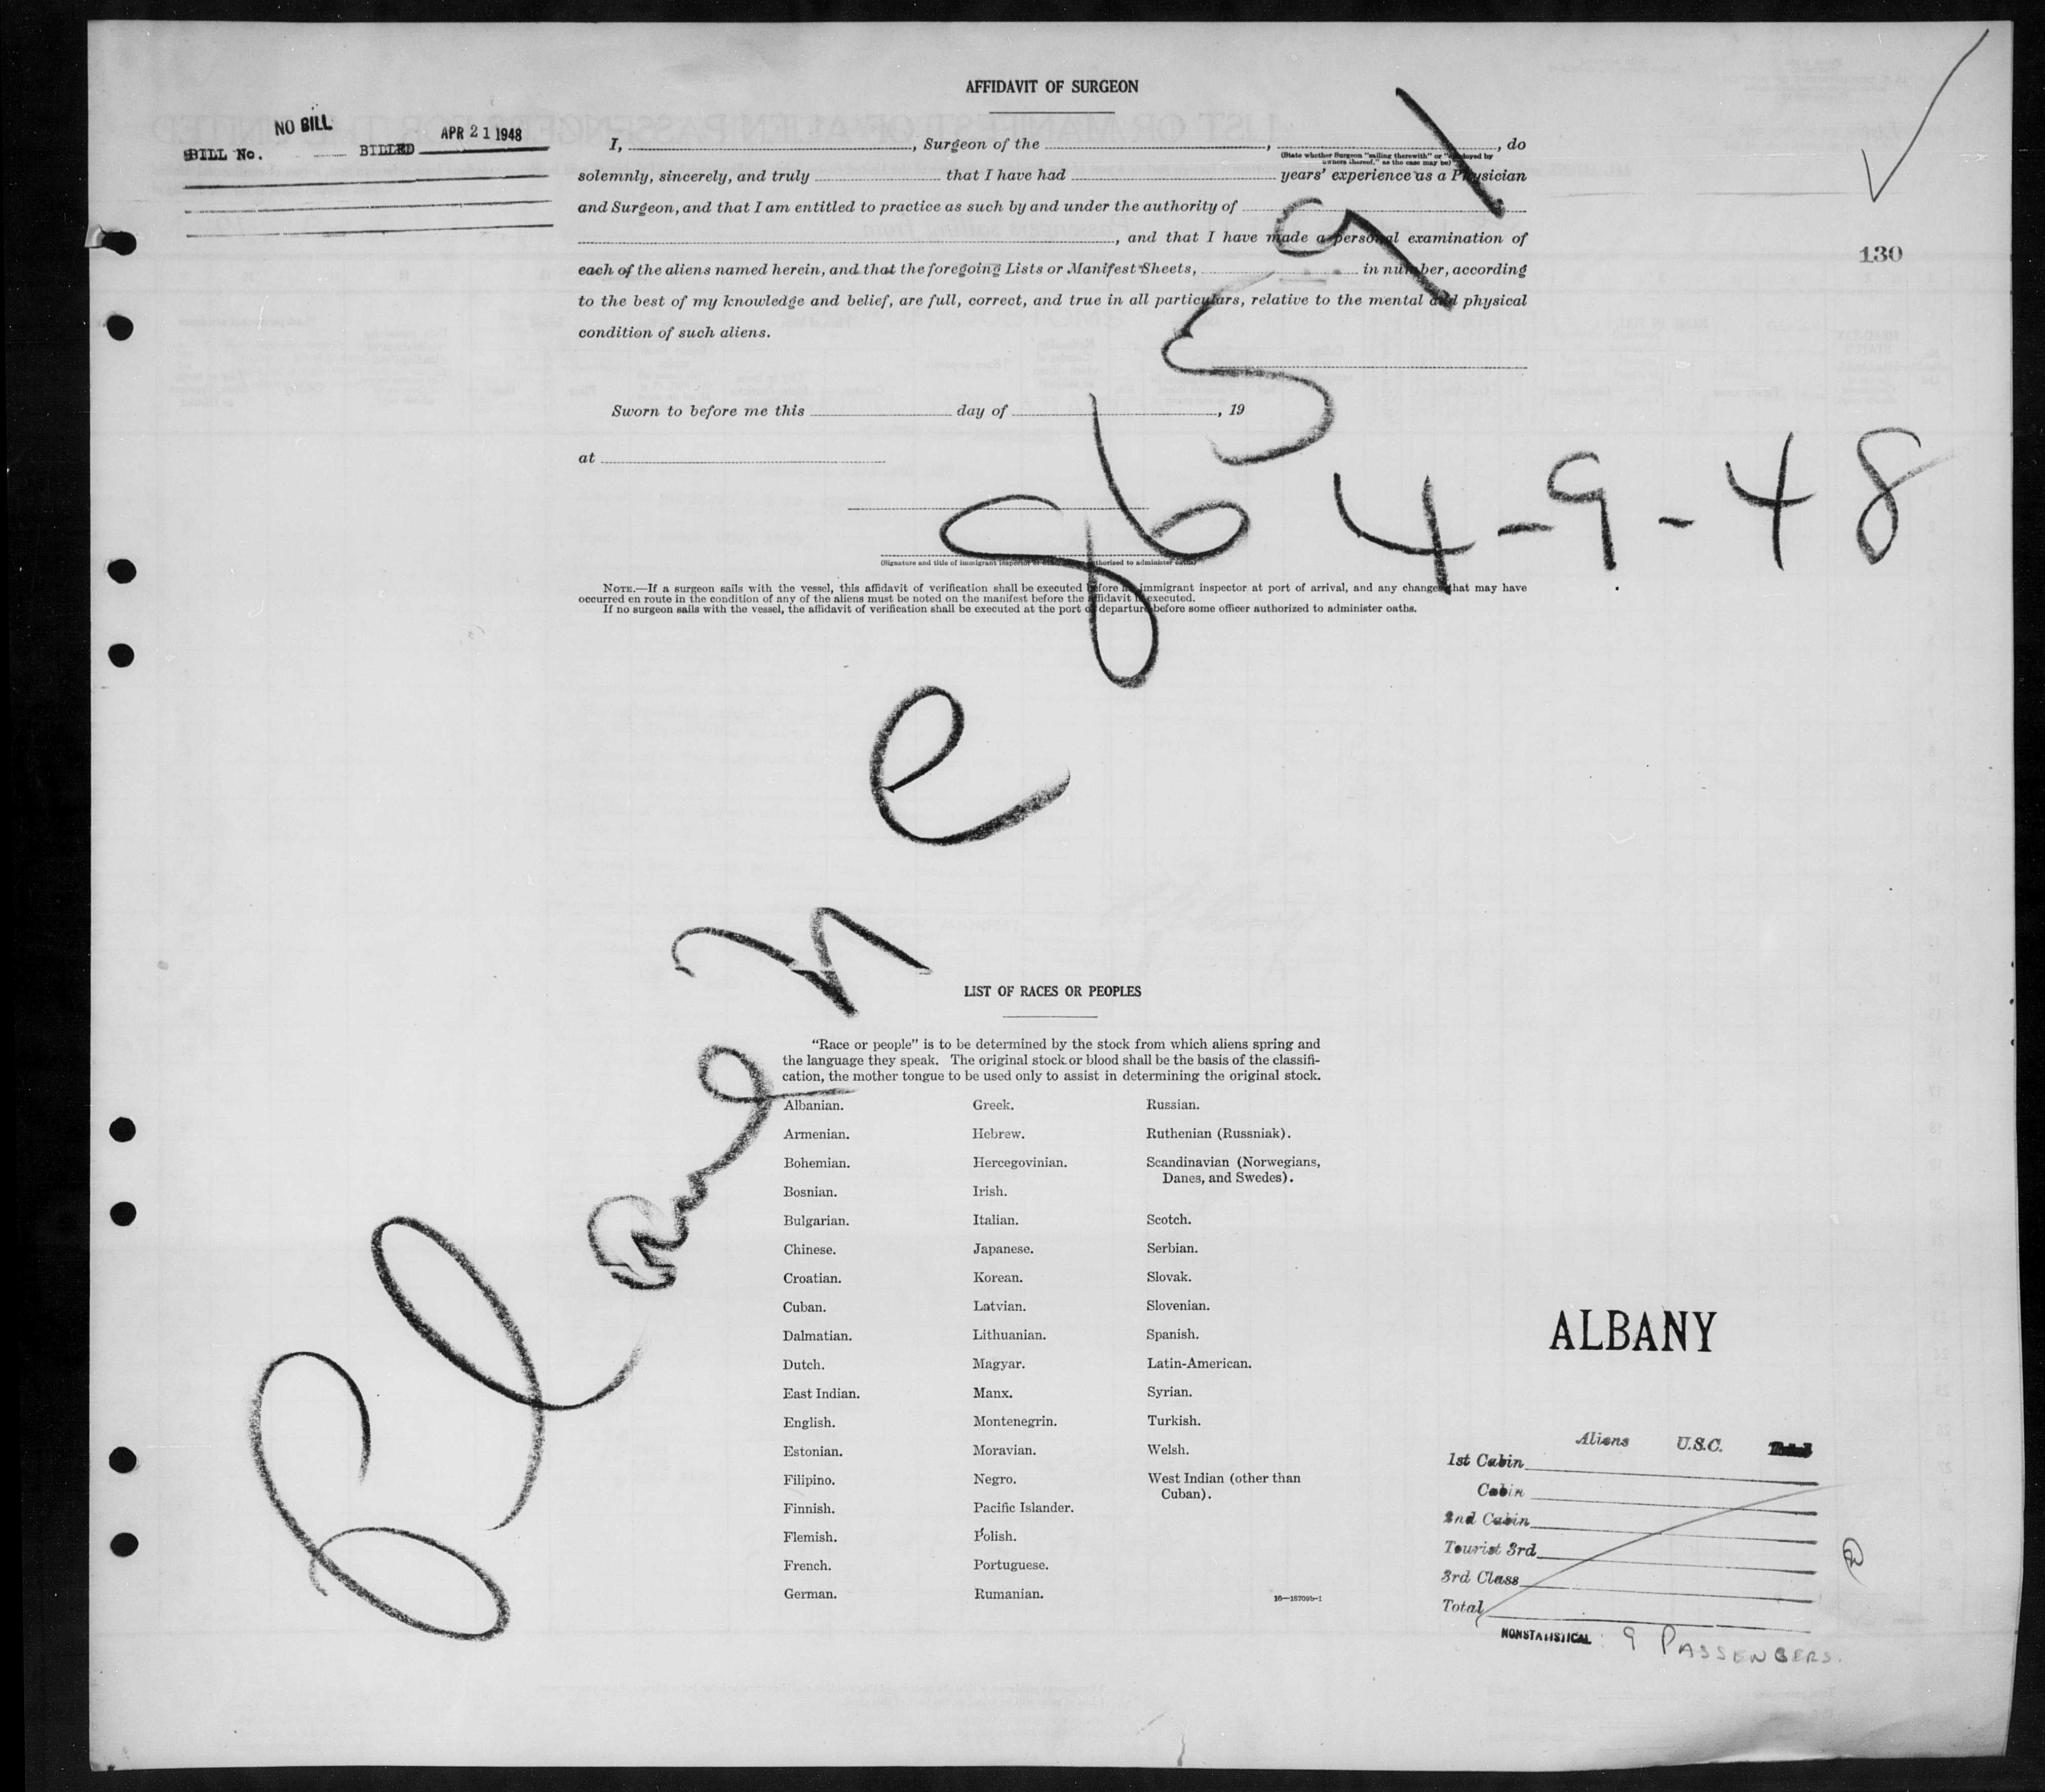 AFFIDAVIT OF SURGEON
NO BILL
BILL No. BILLED APR 21 1948
130
I, , Surgeon of the , , do
(State whether Surgeon "sailing therewith" or "employed by owners thereof," as the case may be)
solemnly, sincerely, and truly that I have had years' experience as a Physician
and Surgeon, and that I am entitled to practice as such by and under the authority of
, and that I have made a personal examination of
each of the aliens named herein, and that the foregoing Lists or Manifest Sheets, in number, according
to the best of my knowledge and belief, are full, correct, and true in all particulars, relative to the mental and physical
condition of such aliens.
Sworn to before me this day of , 19
at
4-9-48
(Signature and title of immigrant inspector or authorized to administer oaths)
NOTE.—If a surgeon sails with the vessel, this affidavit of verification shall be executed before immigrant inspector at port of arrival, and any changes that may have
occurred en route in the condition of any of the aliens must be noted on the manifest before the affidavit is executed.
If no surgeon sails with the vessel, the affidavit of verification shall be executed at the port of departure before some officer authorized to administer oaths.
Plane
LIST OF RACES OR PEOPLES
"Race or people" is to be determined by the stock from which aliens spring and
the language they speak. The original stock or blood shall be the basis of the classifi-
cation, the mother tongue to be used only to assist in determining the original stock.
Albanian. Greek. Russian.
Armenian. Hebrew. Ruthenian (Russniak).
Bohemian. Hercegovinian. Scandinavian (Norwegians,
Danes, and Swedes).
Bosnian. Irish.
Bulgarian. Italian. Scotch.
Chinese. Japanese. Serbian.
Croatian. Korean. Slovak.
Cuban. Latvian. Slovenian.
Dalmatian. Lithuanian. Spanish.
Dutch. Magyar. Latin-American.
East Indian. Manx. Syrian.
English. Montenegrin. Turkish.
Estonian. Moravian. Welsh.
Filipino. Negro. West Indian (other than
Cuban).
Finnish. Pacific Islander.
Flemish. Polish.
French. Portuguese.
German. Rumanian.
16—18709b-1
ALBANY
Aliens U.S.C. Total
1st Cabin
Cabin
2nd Cabin
Tourist 3rd
3rd Class
Total
NONSTATISTICAL 9 PASSENGERS.